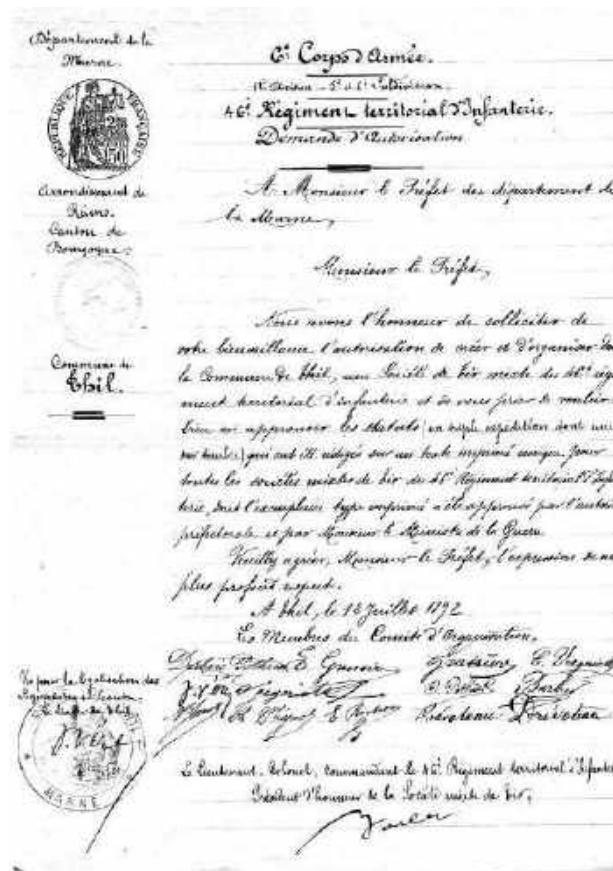 Département de la
Marne.
RÉPUBLIQUE FRANÇAISE
Arrondissement de
Reims.
Canton de
Bourgogne.
Commune de
Thil.
6e Corps d'Armée.
46e Régiment territorial d'Infanterie.
Demande d'Autorisation
A Monsieur le Préfet du département de
la Marne,
Monsieur le Préfet,
Nous avons l'honneur de solliciter de
votre bienveillance l'autorisation de créer et d'organiser dans
la Commune de Thil, une Société de tir mixte du 46e régi
ment territorial d'infanterie et de vous prier de vouloir
bien en approuver les statuts (en triple expédition dont une
sur timbre) qui ont été rédigés sur un texte imprimé unique pour
toutes les sociétés mixtes de tir du 46e Régiment territorial d'Infan
terie, dont l'exemplaire type imprimé a été approuvé par l'autorité
préfectorale et par Monsieur le Ministre de la Guerre
Veuillez agréer, Monsieur le Préfet, l'expression de nos
plus profond respect.
A Thil, le 18 Juillet 1892
Les Membres du Comité d'Organisation.
Vu pour la légalisation des
signatures
Le Maire de Thil
MARNE
Le Lieutenant-Colonel, commandant le 46e Régiment territorial d'Infanterie
Président d'honneur de la Société mixte de tir,